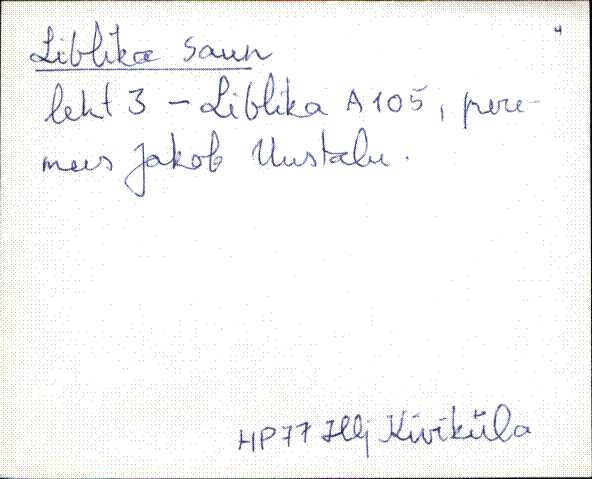 Liblika saun
leht 3 – Liblika A105, pere-
mees Jakob Uustalu.
HP77 Hlj Kiviküla